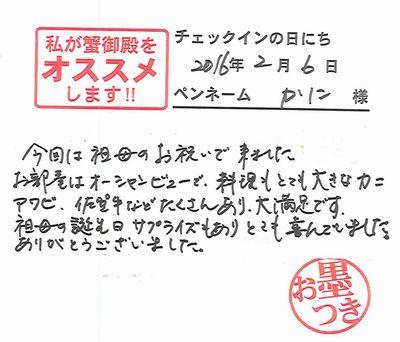 私が蟹御殿を
オススメ
します!!
チェックインの日にち
2016年 2月 6日
ペンネーム かリン 様
今回は祖母のお祝いで来ました
お部屋はオーシャンビューで、料理もとても大きなカニ
アワビ、佐賀牛などたくさんあり、大満足です。
祖母の誕生日サプライズもありとても喜んでいました。
ありがとうございました。
お墨つき